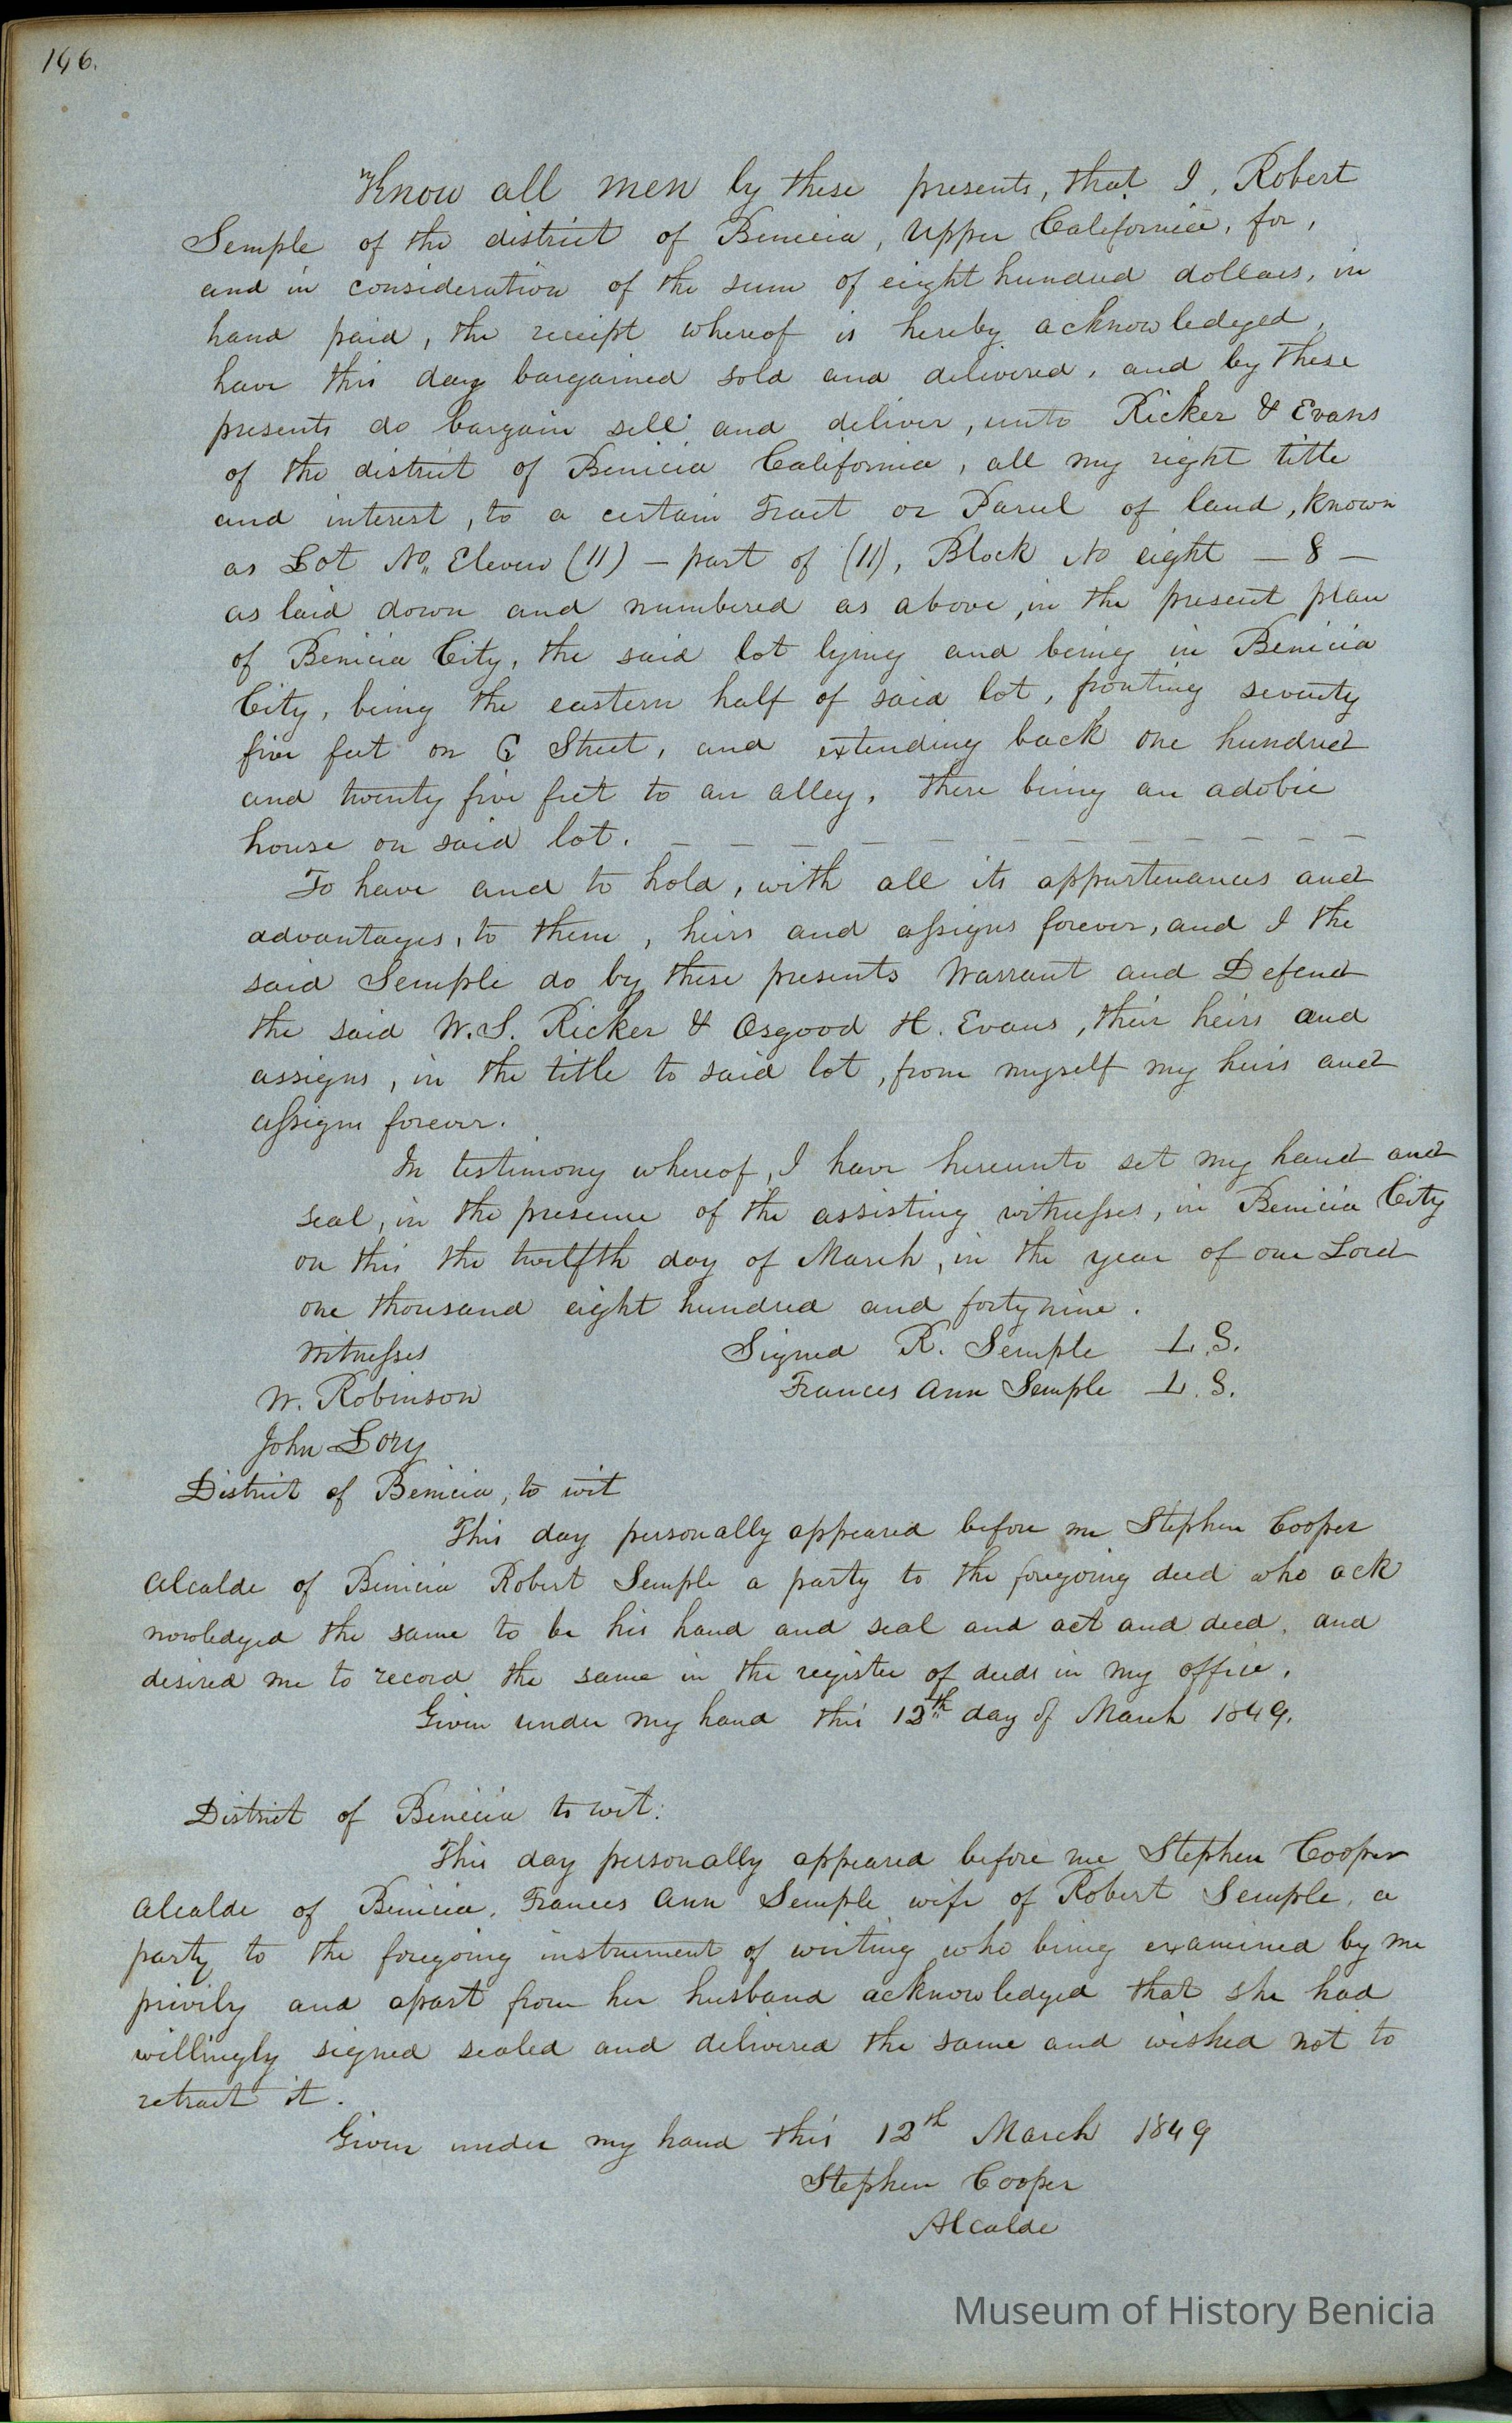 146.
Know all men by these presents, that I, Robert
Semple of the district of Benicia, Upper California, for,
and in consideration of the sum of eight hundred dollars, in
hand paid, the receipt whereof is hereby acknowledged,
have this day bargained sold and delivered, and by these
presents do bargain sell and deliver, unto Ricker & Evans
of the district of Benicia California, all my right title
and interest, to a certain Tract or Parcel of land, known
as Lot No. Eleven (11) — part of (11), Block No eight — 8 —
as laid down and numbered as above, in the present plan
of Benicia City, the said lot lying and being in Benicia
City, being the eastern half of said lot, fronting seventy
five feet on G Street, and extending back one hundred
and twenty five feet to an alley, there being an adobie
house on said lot. — — — — — — — — — — —
To have and to hold, with all its appurtenances and
advantages, to them, heirs and assigns forever, and I the
said Semple do by these presents Warrant and Defend
the said W. S. Ricker & Osgood H. Evans, their heirs and
assigns, in the title to said lot, from myself my heirs and
assigns forever.
In testimony whereof, I have hereunto set my hand and
seal, in the presence of the assisting witnesses, in Benicia City
on this the twelfth day of March, in the year of our Lord
one thousand eight hundred and forty nine.
Witnesses Signed R. Semple L.S.
W. Robinson Frances Ann Semple L.S.
John Lory
District of Benicia, to wit
This day personally appeared before me Stephen Cooper
Alcalde of Benicia Robert Semple a party to the foregoing deed who ack
nowledged the same to be his hand and seal and act and deed, and
desired me to record the same in the register of deeds in my office.
Given under my hand this 12th day of March 1849.
District of Benicia to wit:
This day personally appeared before me Stephen Cooper
Alcalde of Benicia, Frances Ann Semple wife of Robert Semple, a
party to the foregoing instrument of writing who being examined by me
privily and apart from her husband acknowledged that she had
willingly signed sealed and delivered the same and wished not to
retract it.
Given under my hand this 12th March 1849
Stephen Cooper
Alcalde
Museum of History Benicia